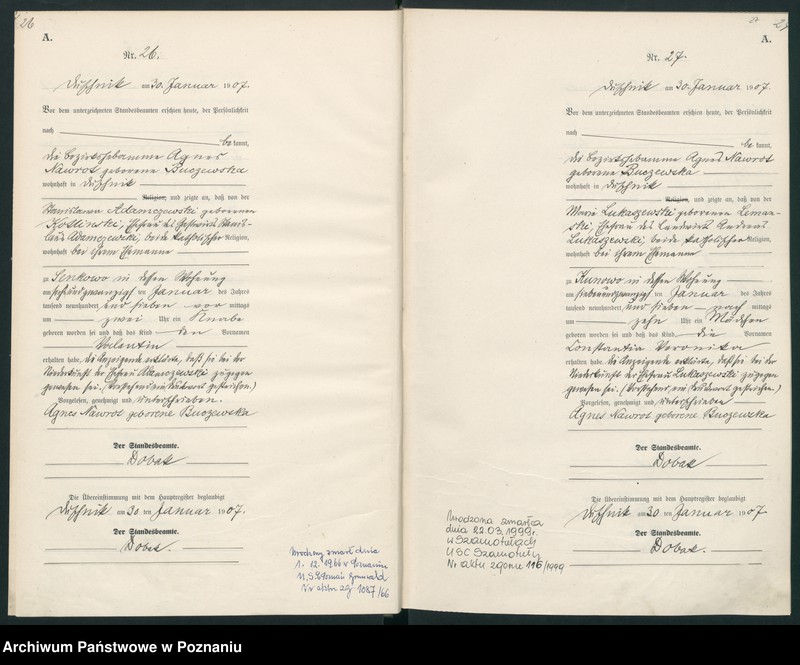 26
A.
Nr. 26.
Duschnik am 30. Januar 1907.
Vor dem unterzeichneten Standesbeamten erschien heute, der Persönlichkeit
nach
be kannt,
die Bezirkshebamme Agnes
Nawrot geborene Buszewska
wohnhaft in Duschnik
Religion, und zeigte an, daß von der
Stanislawa Adamczewski geborenen
Koslinski, Ehefrau des Gastwirts Stanis-
laus Adamczewski, beide katholischer Religion,
wohnhaft bei ihrem Ehemanne
zu Senkowo in dessen Wohnung
am sechsundzwanzigsten Januar des Jahres
tausend neunhundert und sieben vor mittags
um zwei Uhr ein Knabe
geboren worden sei und daß das Kind den Vornamen
Valentin
erhalten habe. Die Anzeigende erklärte, daß sie bei der
Niederkunft der Ehefrau Adamczewski zugegen
gewesen sei. (Vorstehend ein Druckwort gestrichen.)
Vorgelesen, genehmigt und unterschrieben.
Agnes Nawrot geborene Buszewska
Der Standesbeamte.
Dobak
Die Übereinstimmung mit dem Hauptregister beglaubigt
Duschnik am 30 ten Januar 1907.
Der Standesbeamte.
Dobak.
zmarł dnia
1. 12. 1966 w Poznaniu
Nr aktu zg. 1087/66
27
A.
Nr. 27.
Duschnik am 30. Januar 1907.
Vor dem unterzeichneten Standesbeamten erschien heute, der Persönlichkeit
nach
be kannt,
die Bezirkshebamme Agnes Nawrot
geborene Buszewska
wohnhaft in Duschnik
Religion, und zeigte an, daß von der
Marie Lukaszewski geborenen Liman-
ski, Ehefrau des Landwirts Andreas
Lukaszewski, beide katholischer Religion,
wohnhaft bei ihrem Ehemanne
zu Kunowo in dessen Wohnung
am siebenundzwanzigsten Januar des Jahres
tausend neunhundert und sieben nach mittags
um zehn Uhr ein Mädchen
geboren worden sei und daß das Kind die Vornamen
Constantia Veronika
erhalten habe. Die Anzeigende erklärte, daß sie bei der
Niederkunft der Ehefrau Lukaszewski zugegen
gewesen sei. (Vorstehend ein Druckwort gestrichen.)
Vorgelesen, genehmigt und unterschrieben
Agnes Nawrot geborene Buszewska
Der Standesbeamte.
Dobak
Die Übereinstimmung mit dem Hauptregister beglaubigt
Duschnik am 30 ten Januar 1907.
Der Standesbeamte.
Dobak.
Urodzona zmarła
dnia 22.03.1999 r.
w Szamotułach
USC Szamotuły
Nr aktu zgonu 116/1999
Archiwum Państwowe w Poznaniu